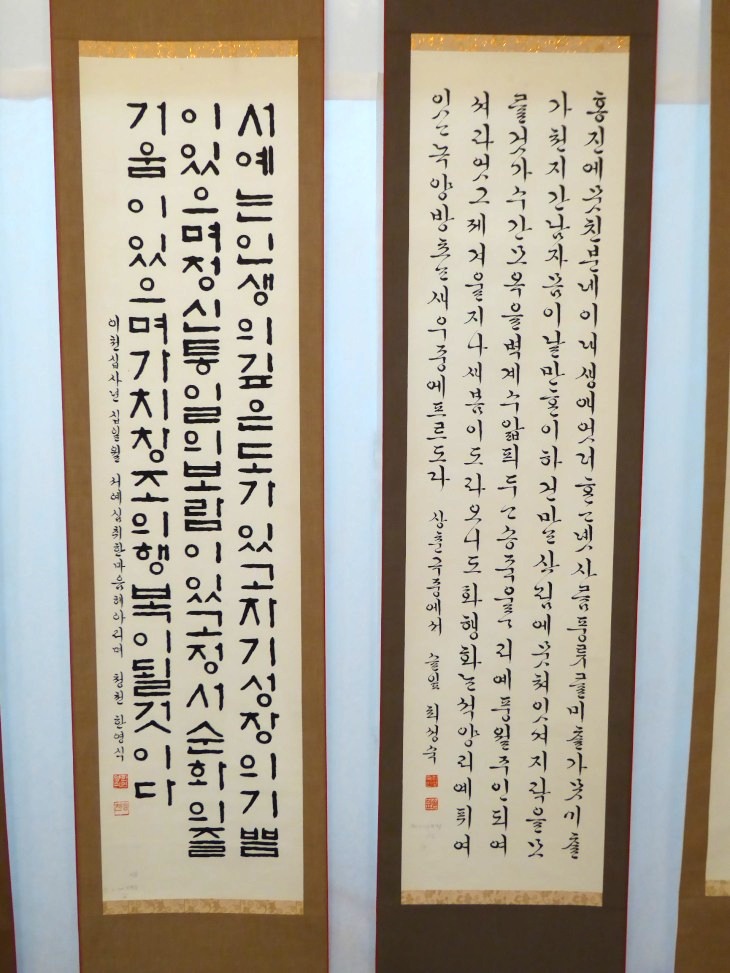 서예는인생의깊은도가있고자기성장의기쁨
이있으며정신통일의보람이있고정서순화의즐
거움이있으며가치창조의행복이될것이다
이천십사년 십일월 서예심취한마음헤아리며 청천 한영식
홍진에뭇친분네이내생애엇더ᄒᆞᆫ고녯사ᄅᆞᆷ풍류ᄅᆞᆯ미ᄎᆞᆯ가못미ᄎᆞᆯ
가천지간남자몸이날만ᄒᆞᆫ이하건마ᄂᆞᆫ산림에뭇쳐잇셔지락을모
ᄅᆞᆯ것가수간모옥을벽계수앏픠두고송죽울울리예풍월주인되여
셔라엇그제겨을지나새봄이도라오니도화행화ᄂᆞᆫ석양리예퓌여
잇고녹양방초ᄂᆞᆫ세우중에프르도다 상춘곡중에서 솔잎 최상숙